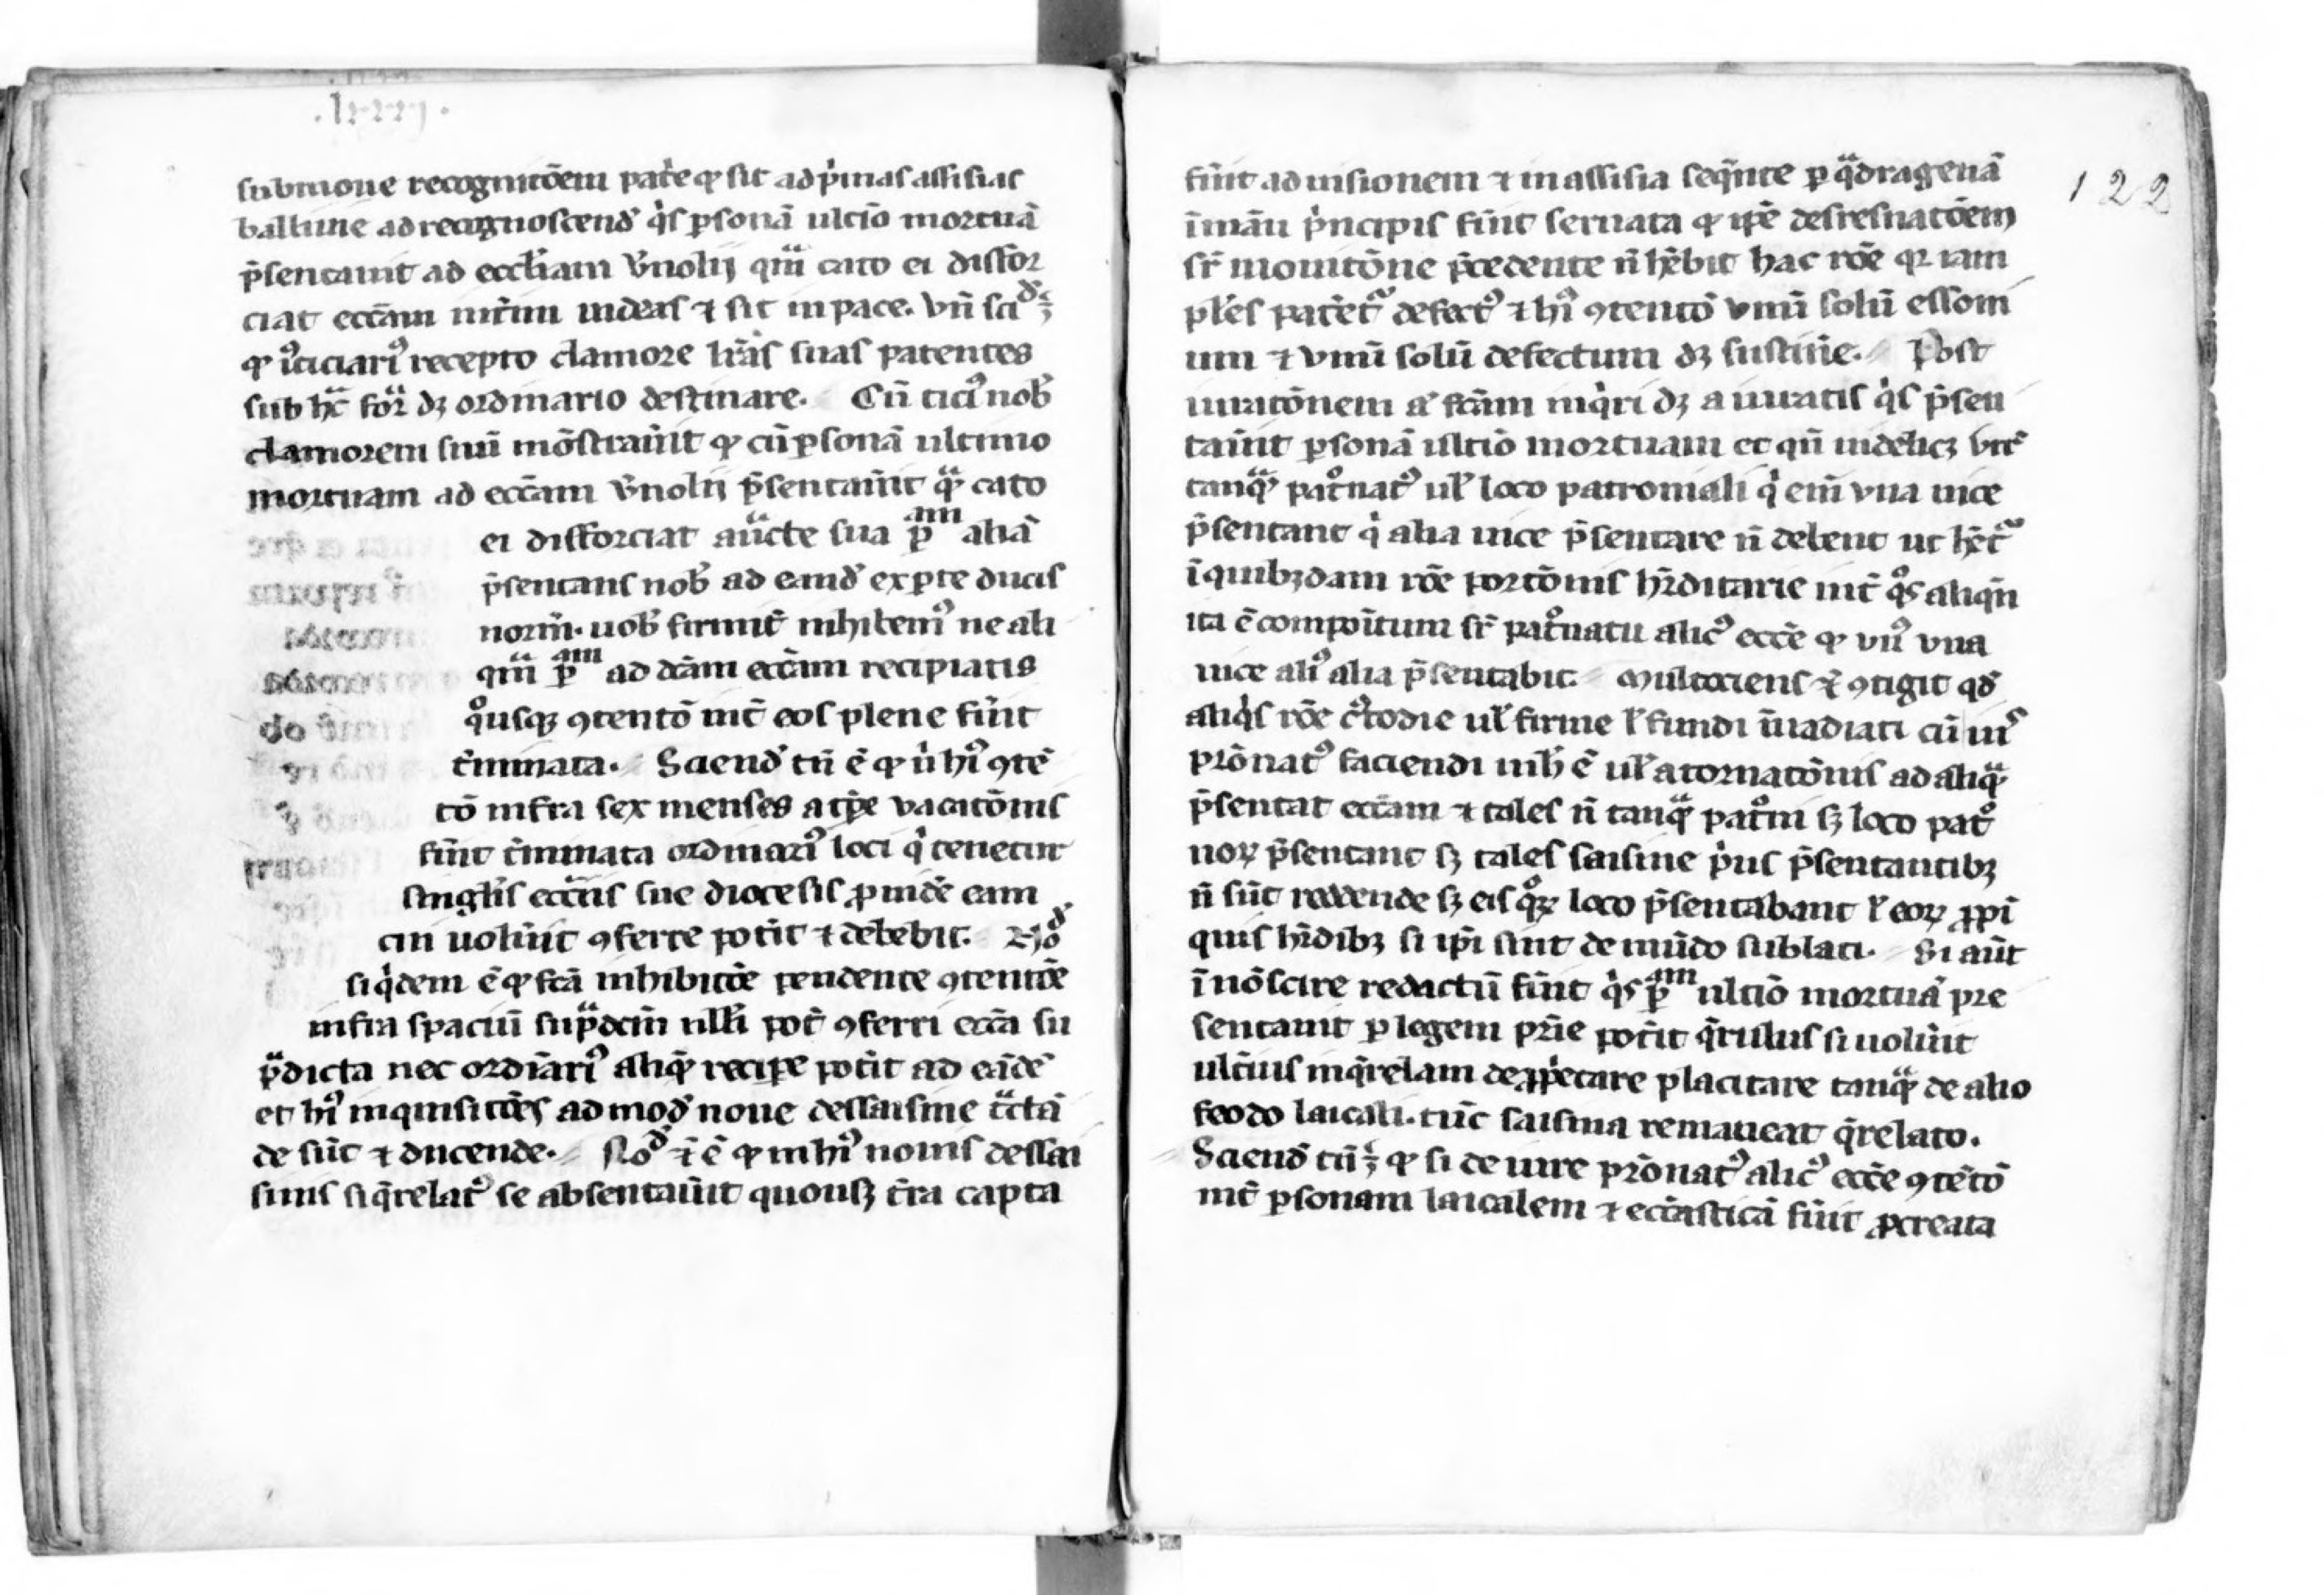 .lxxxj.
submone recognitōem patͥe qͥ sit ad pͥmas assisias
balliuie ad recognoscendͦ qͥs ꝑsonā ultīo mortuā
p̄sentauit ad eccłiam v̄nolij qm̄ cato ei disfor
ciat eccām nirim uideas ⁊ sit in pace. vn̄ sciꝫ
ꝙ iͣticiariꝰ recepto clamore lr̄as suas patentes
sub hͣc forͣ dꝫ ordinario destinare. Cū ticiꝰ nobͭ
clamorem suū mōstrauit ꝙ cū ꝑsonā ultimo
mortuam ad eccām v̄nolij p̄sentauīt qͣꝫ cato
ei disforciat aūcte sua ꝑam aliā
p̄sentans nobͭ ad eamdͦ ex ꝑte ducis
norm̄. uobͭ firmit̄ inhibemꝰ ne ali
quͣm ꝑam ad dc̄am eccām recipiatis
qͦusqꝫ ꝯtentō int̄ eos plene fūit
t̄minata. Sciendͦ tn̄ ē ꝙ n̄ hiꝰ ꝯtē
tō infra sex menses a tꝑe vacatōnis
fūit t̄minata ordinariꝰ loci qͥ tenetur
singłis eccͣis sue diocesis ꝓuidē eam
cui uolūit ꝯferre potīt ⁊ debebit. Noͩ
siqͥdem ē ꝙ fcā inhibitōe pendente ꝯtentōe
infra spaciū supͣdcm̄ ulli pot̄ ꝯferri eccͣa su
pͣdicta nec ordīariꝰ aliqͣꝫ recipe potīt ad eādē
et hiꝰ inquisitōes ad modͦ noue dessaisine tͣctā
de sūt ⁊ ducende. Noͩ ⁊ ē ꝙ in hiꝰ nouis dessai
sinis si qͥrelatꝰ se absentauīt quousqꝫ t̄ra capta
122
fūit ad uisionem ⁊ in assisia seqn̄te ꝑ qͣdragenā
ī manu pͥncipis fūit seruata ꝙ tꝑe desresnatōem
sr̄ monitōne p̄cedente n̄ hēbit hac rōe qꝛ iam
płes patet̄ defectꝰ ⁊ hiꝰ ꝯtentō vnū solū essoni
um ⁊ vnū solū defectum dꝫ sustīe. Post
iuratōnem aͭ fcām inqͥri dꝫ a iuratis qͥs p̄sen
tauīt ꝑsonā ultīo mortuam et qn̄ uidelicꝫ vt̄
tanqͣꝫ patͦnatꝰ uł loco patronali qͥ eni vna uice
p̄sentant qͥ alia uice p̄sentare n̄ debent ut hēt̄
ī quibꝫdam rōe portōnis hr̄ditarie int̄ qͦs aliqn̄
ita ē compoītum sr̄ patͦnatu alicꝰ eccē ꝙ vnꝰ vna
uice aliꝰ alia p̄sentabit. Multociens ⁊ ꝯtigit qdͦ
aliqͥs rōe cͧstodie uł firme ł fundi īuadiati cū iurͤ
prōnatꝰ faciendi nih̄ ē uł atornatōnis ad aliqͣꝫ
p̄sentat eccām ⁊ tales n̄ tanqͣꝫ patͦni sꝫ loco patͦ
noꝝ p̄sentant sꝫ tales saisine pͥus p̄sentantibꝫ
n̄ sūt reddende sꝫ eis qͦꝝ loco p̄sentabant ł eoꝝ ꝓpi
quis hr̄dibꝫ si ip̄i sint de mūdo sublati. Si aūt
ī nōscire redactū fūit qͥs ꝑam ultīo mortuā pre
sentauit ꝑ legem pr̄ie potīt qͥrulus si uolūit
ultīus inqͥrelam de ꝓpͥetate placitare tanqͣꝫ de alio
feodo laicali. tūc saisina remaneat qͥrelato.
Sciendͦ tn̄ ē ꝙ si de iure prōnatꝰ alicꝰ eccē ꝯtētō
int̄ ꝑsonam laicalem ⁊ eccāsticā fūit ꝓcreata